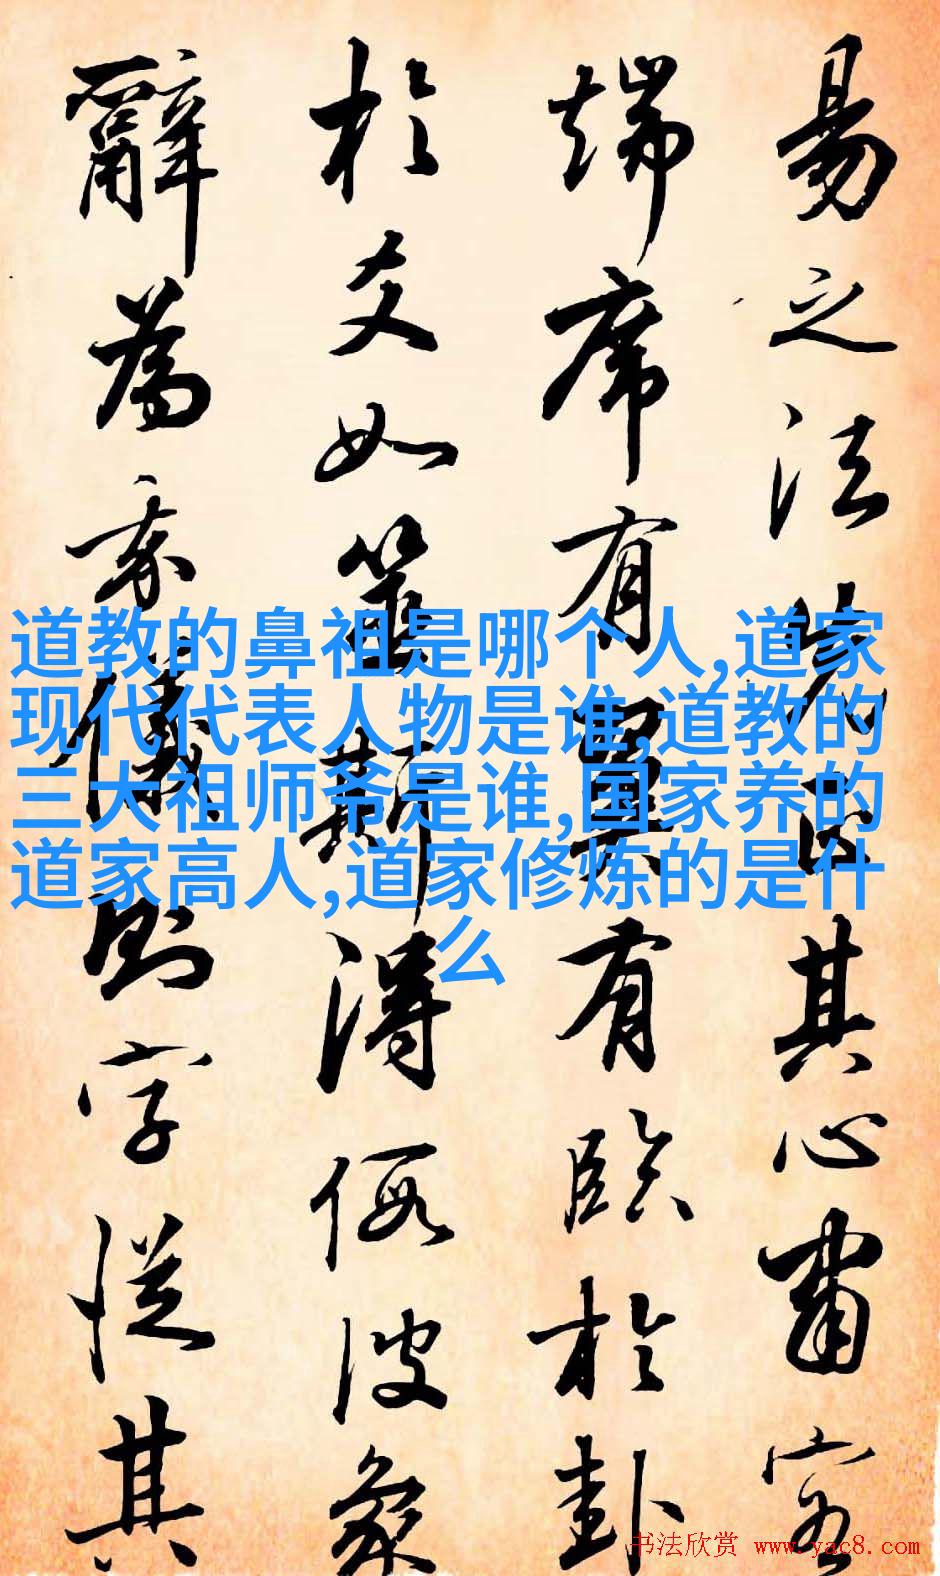 易之法曾臣其心肅容
端席有畢有臨於卦
於爻如筮斯得假彼象
辭為義儀則字從其
道教的鼻祖是哪个人,道家
现代代表人物是谁,道教的
三大祖师爷是谁,国家养的
道家高人,道家修炼的是什
么
书法欣赏 www.yac8.com